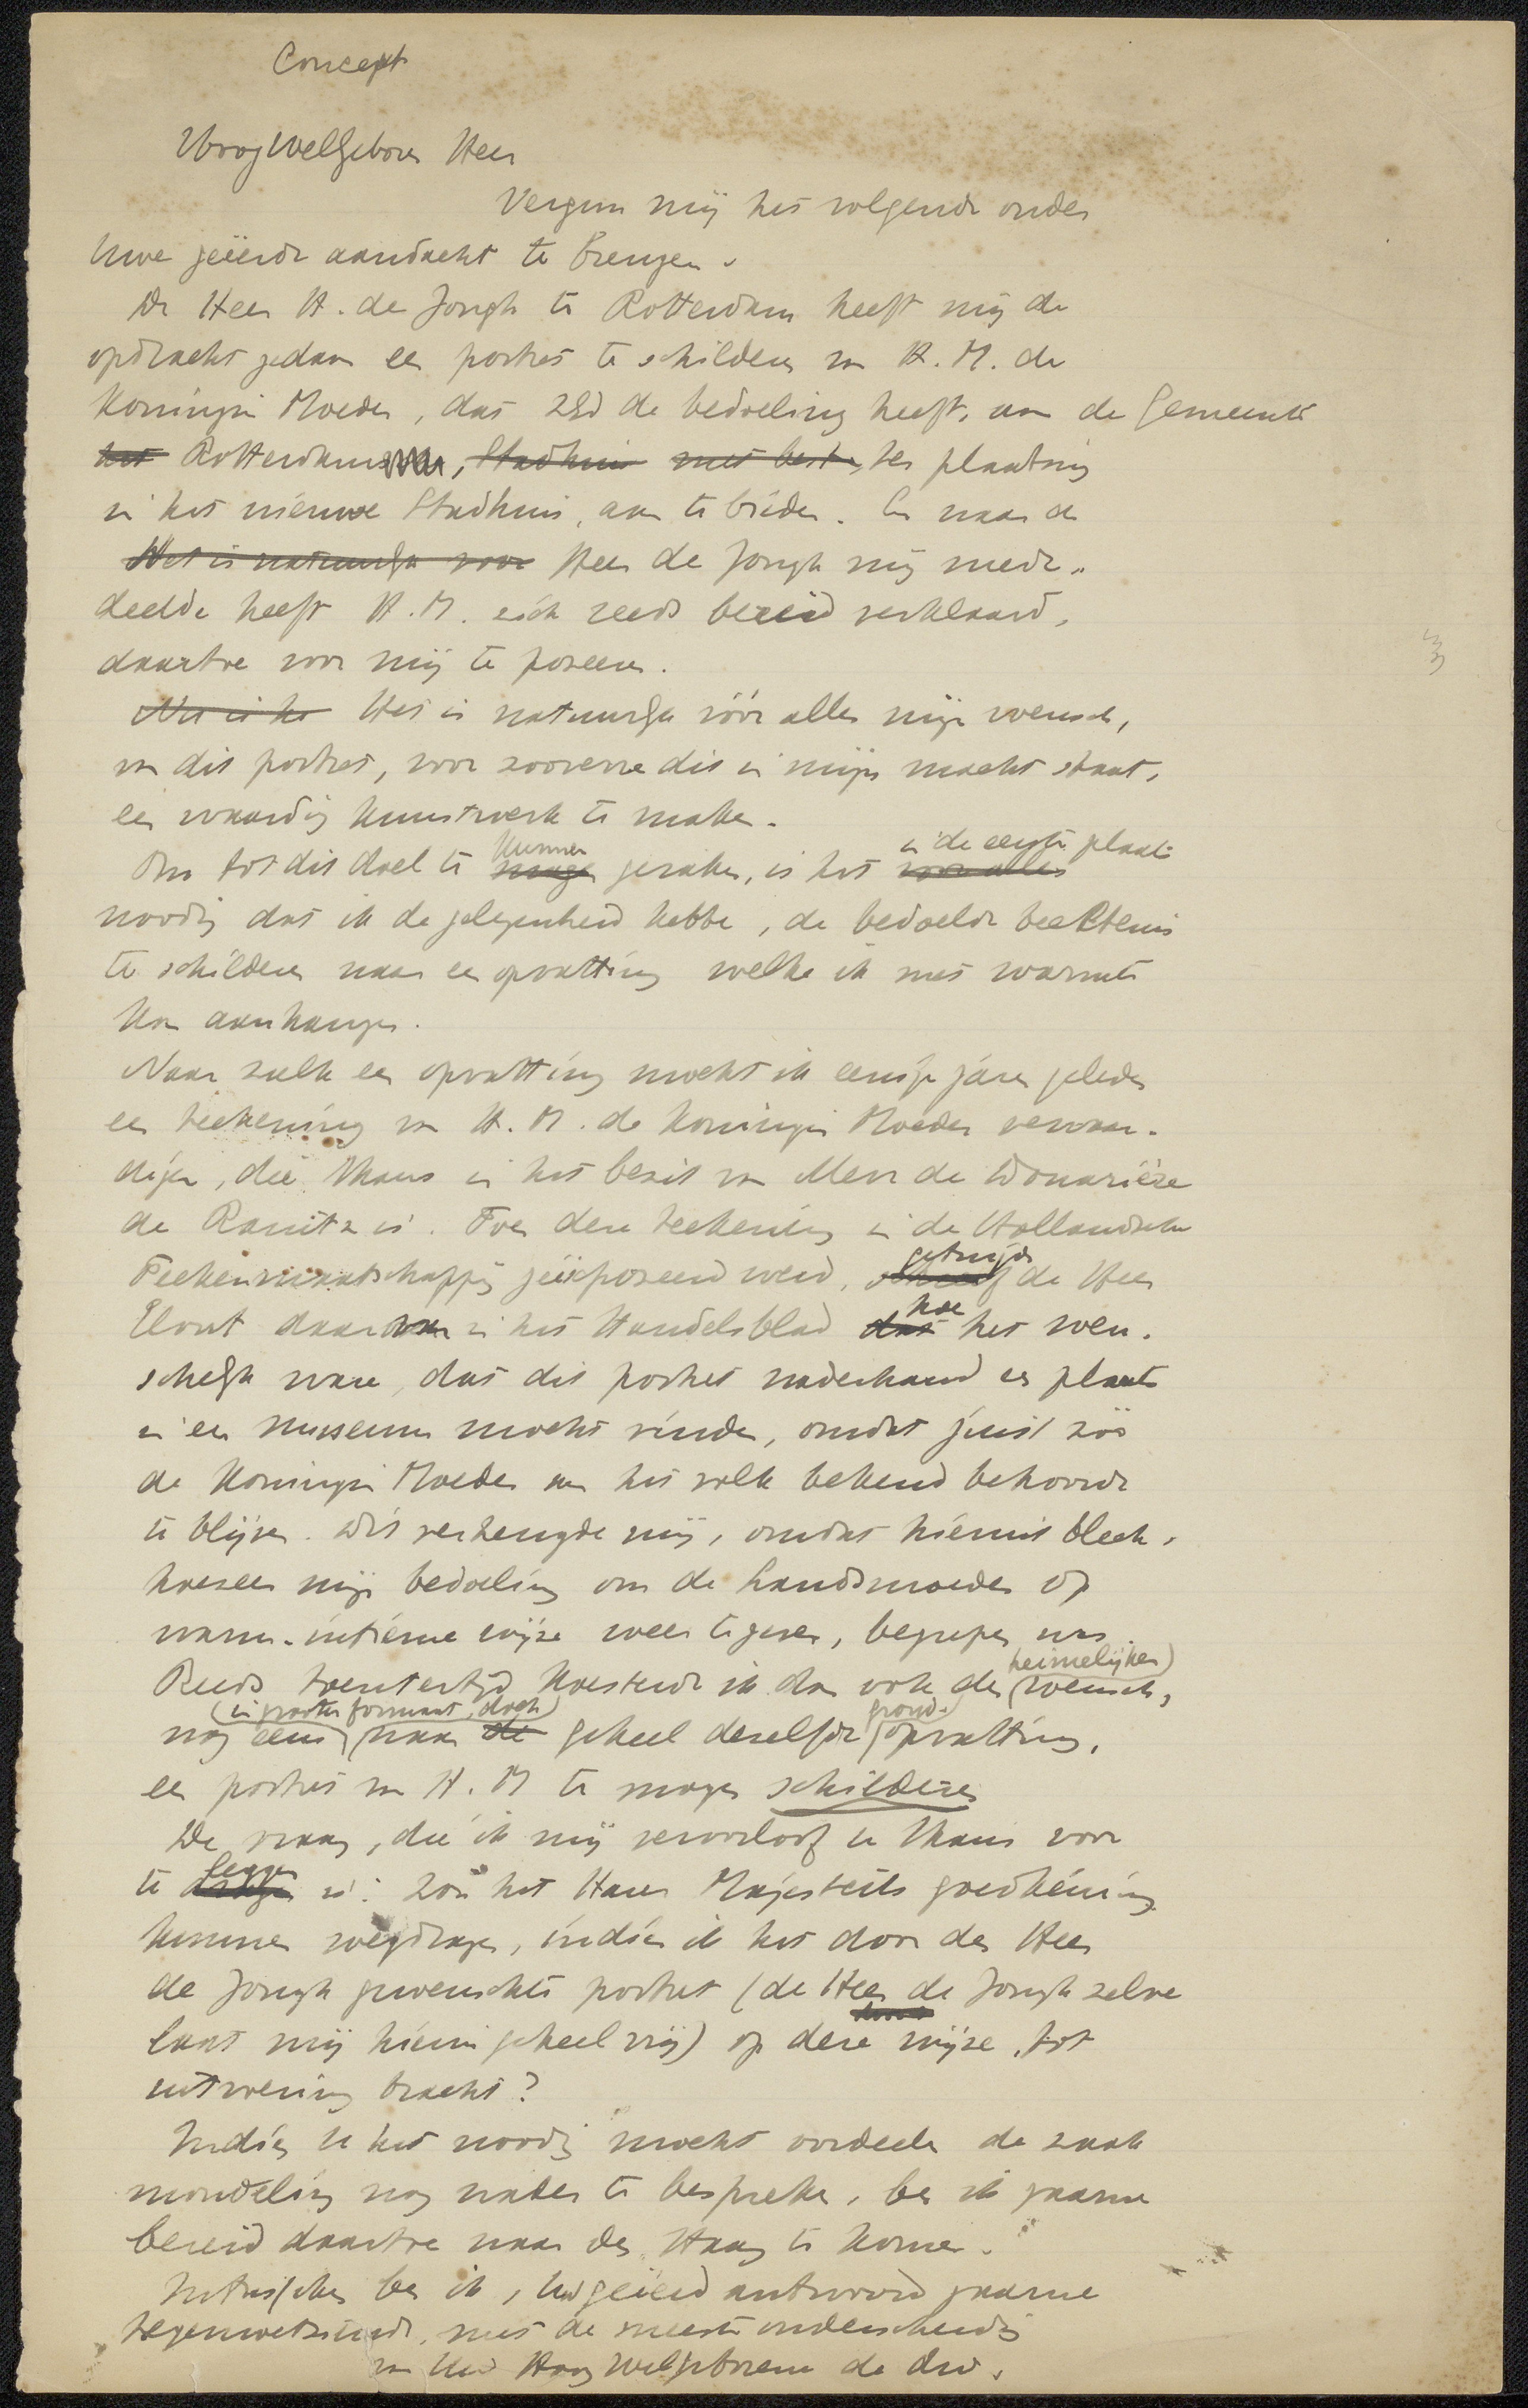 Concept
HoogWelgeboren Heer
Vergun mij het volgende onder
Uwe geëerde aandacht te brengen.
De Heer H. de Jongh te Rotterdam heeft mij de
opdracht gedaan een portret te schilderen van H. M. de
Koningin Moeder, dat ZEd de bedoeling heeft, aan de Gemeente
het Rotterdam, Stadhuis met best. ter plaatsing
in het nieuwe Stadhuis, aan te bieden. En naar de
Het is natuurlijk voor Heer de Jongh mij mede-
deelde heeft H. M. zich reeds bereid verklaard,
daartoe voor mij te poseeren.
Nu is he Het is natuurlijk vóór alles mijn wensch,
van dit portret, voor zooverre dit in mijn macht staat,
een waardig kunstwerk te maken.
kunnen in de eerste plaats
Om tot dit doel te mogen geraken, is het voor alles
noodig dat ik de gelegenheid hebbe, de bedoelde beeltenis
te schilderen naar een opvatting welke ik met warmte
kan aanhangen.
Naar zulk een opvatting mocht ik eenige jaren geleden
een teekening van H. M. de Koningin Moeder vervaar-
digen, die thans in het bezit van Mevr de Douarière
de Ranitz is. Toen deze teekening in de Hollandsche
getuigde
Teekenmaatschappij geëxposeerd werd, schreef de Heer
hoe
Elout daarvan in het Handelsblad dat het wen-
schelijk ware, dat dit portret naderhand een plaats
in een museum mocht vinden, omdat juist zóó
de Koningin Moeder aan het volk bekend behoorde
te blijven. Dit verheugde mij, omdat hieruit bleek,
hoezeer mijn bedoeling om de Landsmoeder op
warm-intieme wijze weer te geven, begrepen was.
heimelijken
Reeds toentertijd koesterde ik dan ook den wensch,
(in groote formaat, doch) grond-
nog eens naar de geheel dezelfde opvatting,
een portret van H. M te mogen schilderen
De vraag, die ik mij veroorloof U thans voor
leggen
te is: zou het Harer Majesteits goedkeuring
kunnen wegdragen, indien ik het door den Heer
de Jongh gewenschte portret (de Heer de Jongh zelve
laat mij hierin geheel vrij) op deze wijze, tot
uitvoering bracht?
Indien U het noodig mocht oordeelen de zaak
mondeling nog nader te bespreken, ben ik gaarne
bereid daartoe naar den Haag te komen.
Intusschen ben ik, Uw geëerd antwoord gaarne
tegemoetziende, met de meeste onderscheiding
van Uw HoogWelgeborene de dw.